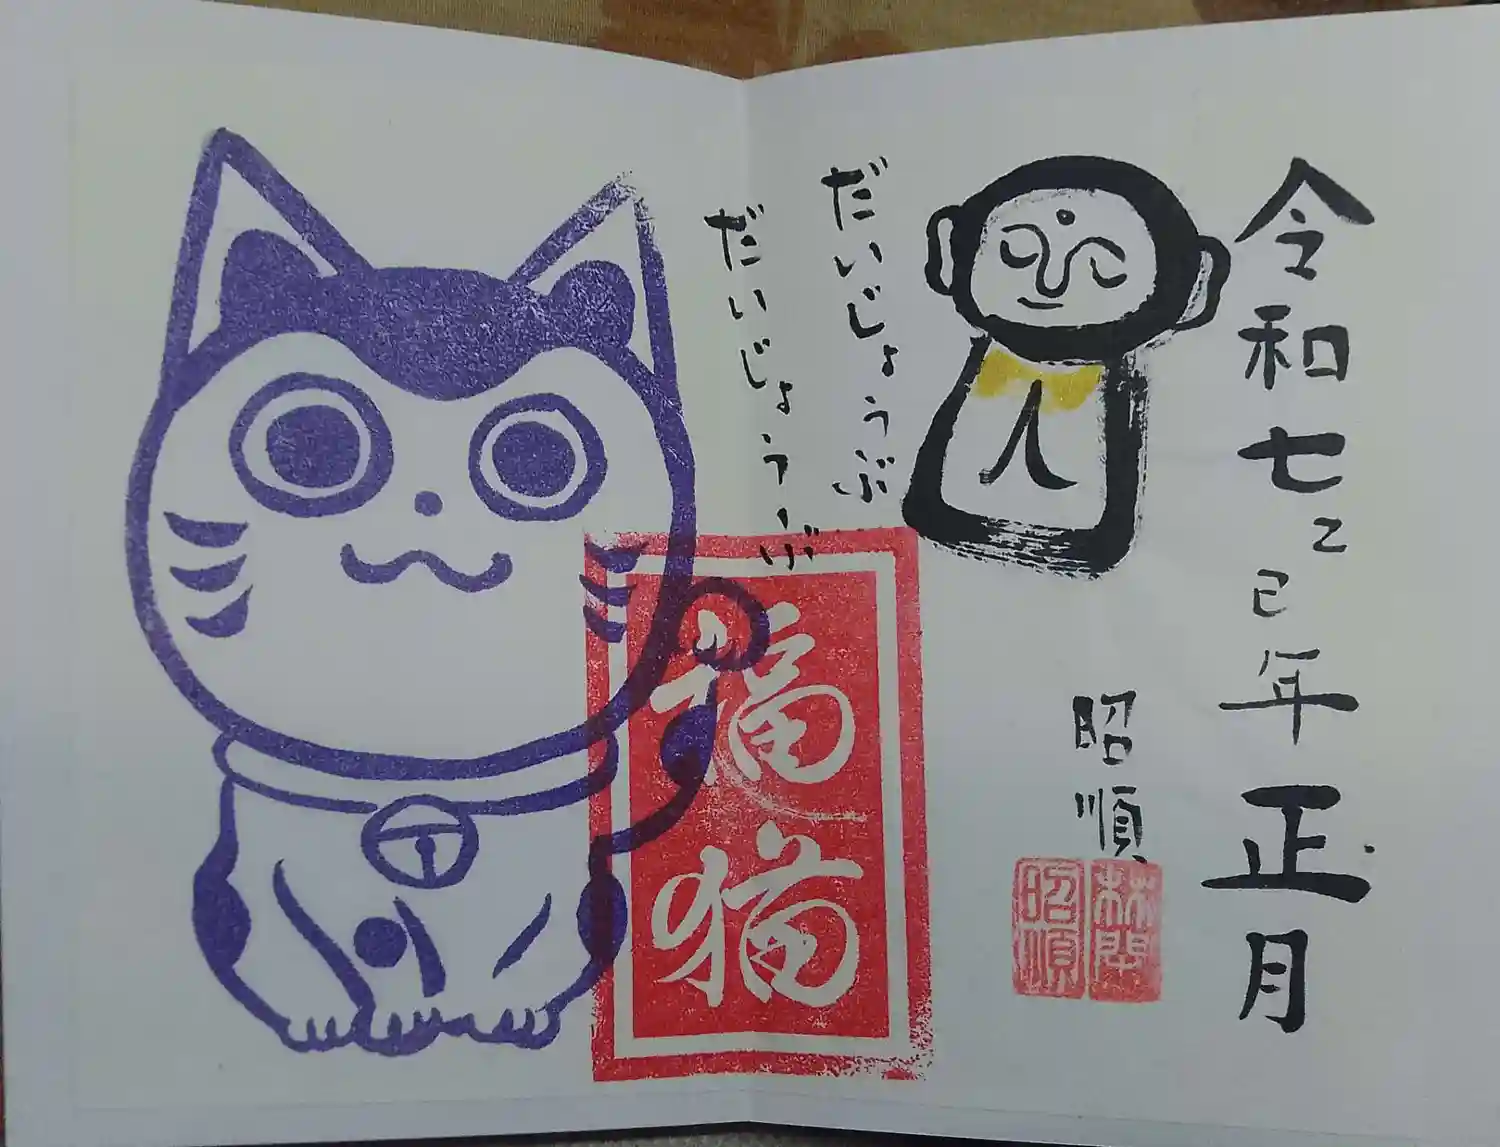 令和七乙巳年正月
昭順
林間
昭順
だいじょうぶ
だいじょうーぶ
福猫